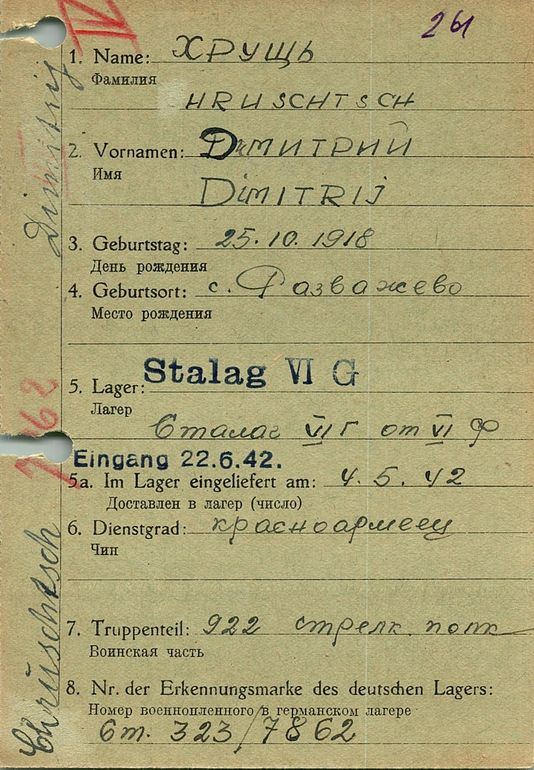 IV
261
1. Name: ХРУЩЬ
Фамилия
HRUSCHTSCH
2. Vornamen: ДиМИТРИЙ
Имя
DIMITRIJ
3. Geburtstag: 25.10.1918
День рождения
4. Geburtsort: с. Разважево
Место рождения
5. Lager: Stalag VI G
Лагер
Сталаг VI г от VI Ф
Eingang 22.6.42.
5a. Im Lager eingeliefert am: 4.5.42
Доставлен в лагер (число)
6. Dienstgrad: красноармеец
Чин
7. Truppenteil: 922 стрелк. полк
Воинская часть
8. Nr. der Erkennungsmarke des deutschen Lagers:
Номер военнопленного в германском лагере
Ст. 323/7862
Chruschtsch
Dimitrij